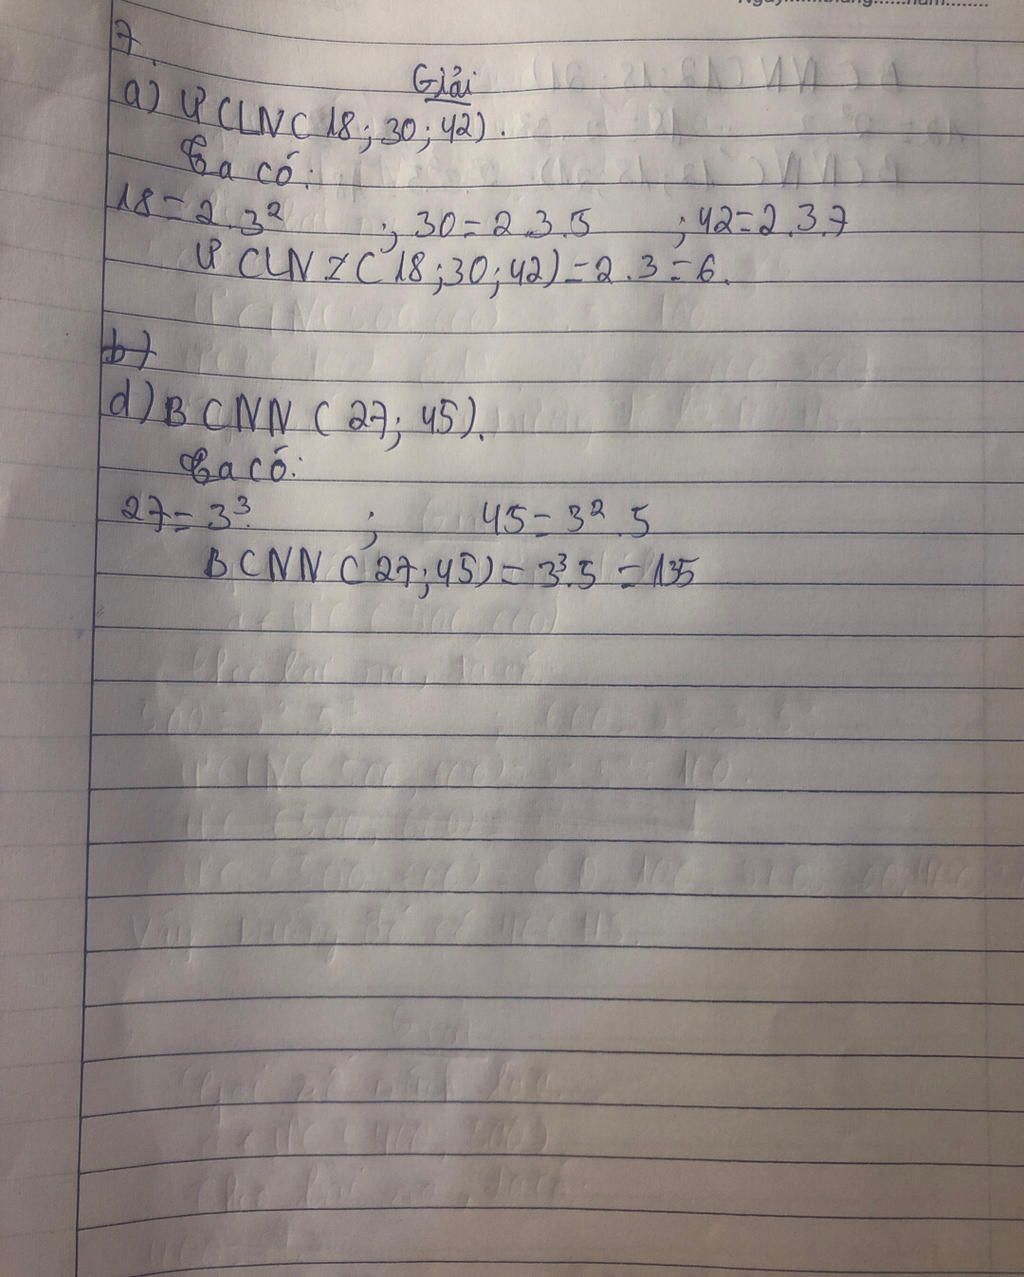 Ngày......tháng......năm........
7.
Giải
a) ƯCLN( 18; 30; 42).
Ta có:
18=2.3² ; 30=2.3.5 ; 42=2.3.7
ƯCLN ( 18;30;42)=2.3=6.
b)
d) BCNN ( 27; 45).
Ta có:
27=3³. ; 45=3².5
BCNN ( 27;45)=3³.5=135